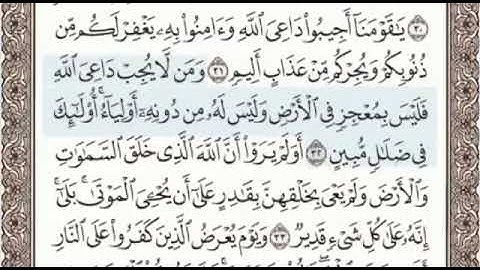 ٣٠ يَٰقَوْمَنَآ أَجِيبُوا۟ دَاعِىَ ٱللَّهِ وَءَامِنُوا۟ بِهِۦ يَغْفِرْ لَكُم مِّن
ذُنُوبِكُمْ وَيُجِرْكُم مِّنْ عَذَابٍ أَلِيمٍ ٣١ وَمَن لَّا يُجِبْ دَاعِىَ ٱللَّهِ
فَلَيْسَ بِمُعْجِزٍ فِى ٱلْأَرْضِ وَلَيْسَ لَهُۥ مِن دُونِهِۦٓ أَوْلِيَآءُ ۚ أُو۟لَٰٓئِكَ
فِى ضَلَٰلٍ مُّبِينٍ ٣٢ أَوَلَمْ يَرَوْا۟ أَنَّ ٱللَّهَ ٱلَّذِى خَلَقَ ٱلسَّمَٰوَٰتِ
وَٱلْأَرْضَ وَلَمْ يَعْىَ بِخَلْقِهِنَّ بِقَٰدِرٍ عَلَىٰٓ أَن يُحْۦِىَ ٱلْمَوْتَىٰ ۚ بَلَىٰٓ
إِنَّهُۥ عَلَىٰ كُلِّ شَىْءٍ قَدِيرٌ ٣٣ وَيَوْمَ يُعْرَضُ ٱلَّذِينَ كَفَرُوا۟ عَلَى ٱلنَّارِ